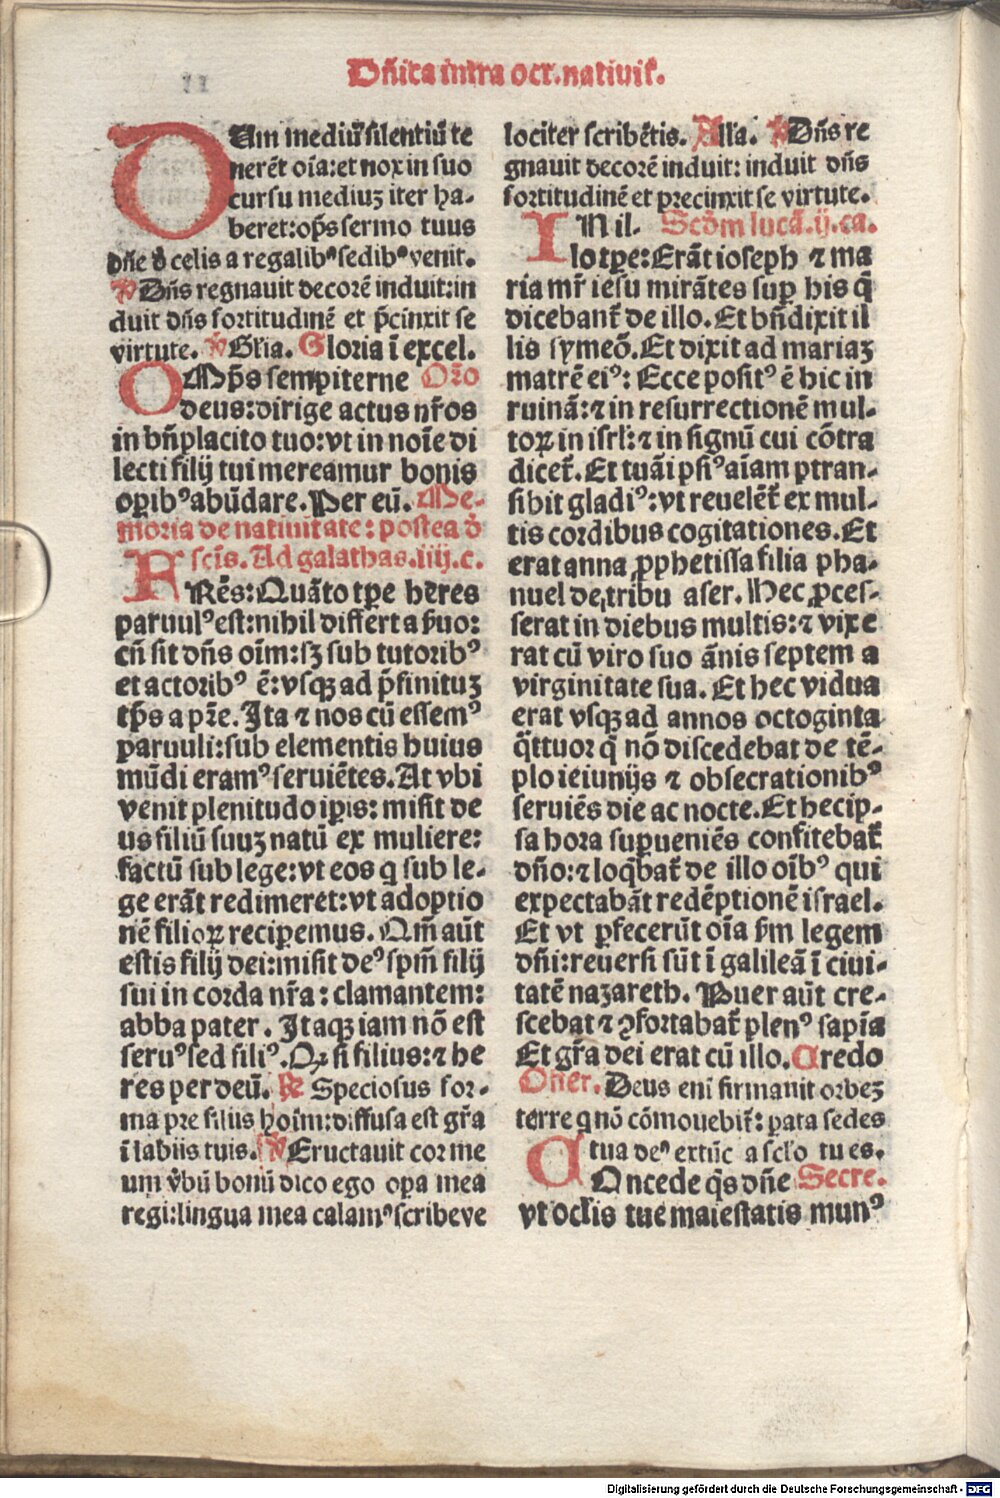 Dn̄ica intra oct. natiuit̄.
DUm mediū silentiū te
nerēt oīa: et nox in suo
cursu mediuꝫ iter ha-
beret: op̄s sermo tuus
dn̄e d̄ celis a regalibꝰ sedibꝰ venit.
℣ Dn̄s regnauit decorē induit: in
duit dn̄s fortitudinē et p̄cinxit se
virtute. ℣ Gl'ia. Gloria ī excel.
OMp̄s sempiterne Or̄o
deus: dirige actus nr̄os
in bn̄placito tuo: vt in noīe di
lecti filij tui mereamur bonis
oꝑibꝰ abūdare. Per eū. Me-
moria de natiuitate: postea d̄
sc̄is. Ad galathas. iiij. c.
FRēs: Quāto tꝑe heres
paruulꝰ est: nihil differt a ẜuo:
cū sit dn̄s oīm: sꝫ sub tutoribꝰ
et actoribꝰ ē: vsqꝫ ad p̄finituꝫ
tp̄s a pr̄e. Ita ⁊ nos cū essemꝰ
paruuli: sub elementis huius
mūdi eramꝰ seruiētes. At vbi
venit plenitudo iꝑis: misit de
us filiū suuꝫ natū ex muliere:
factū sub lege: vt eos q sub le-
ge erāt redimeret: vt adoptio
nē filioꝝ recipemus. Qm̄ aūt
estis filij dei: misit deꝰ spm̄ filij
sui in corda nr̄a: clamantem:
abba pater. Itaqꝫ iam nō est
seruꝰ sed filiꝰ. Qꝫ si filius: ⁊ he
res per deū. ℟ Speciosus for-
ma pre filiis hoīm: diffusa est gr̄a
ī labiis tuis. ℣ Eructauit cor me
um v̄bū bonū dico ego oꝑa mea
regi: lingua mea calamꝰ scribe ve
lociter scribētis. All'a. ℣ Dn̄s re
gnauit decorē induit: induit dn̄s
fortitudinē et precinxit se virtute.
IN il- Scd̄m lucā. ij. ca.
lo tꝑe: Erāt ioseph ⁊ ma
ria mr̄ iesu mirātes suꝑ his q̄
dicebant̄ de illo. Et bn̄dixit il
lis symeō. Et dixit ad mariaꝫ
matrē eiꝰ: Ecce positꝰ ē hic in
ruinā: ⁊ in resurrectionē mul-
toꝝ in isrl: ⁊ in signū cui cōtra
dicet̄. Et tuā ipsiꝰ aīam ꝑtran-
sibit gladiꝰ: vt reuelēt̄ ex mul-
tis cordibus cogitationes. Et
erat anna ꝓphetissa filia pha-
nuel de tribu aser. Hec ꝓces-
serat in diebus multis: ⁊ vixe
rat cū viro suo ānis septem a
virginitate sua. Et hec vidua
erat vsqꝫ ad annos octoginta
q̄ttuor q̄ nō discedebat de tē-
plo ieiunijs ⁊ obsecrationibꝰ
seruiēs die ac nocte. Et hec ip-
sa hora suꝑueniēs confitebat̄
dn̄o: ⁊ loq̄bat̄ de illo oībꝰ qui
expectabāt redēptionē israel.
Et vt ꝑfecerūt oīa ẜm legem
dn̄i: reuersi sūt ī galileā ī ciui-
tatē nazareth. Puer aūt cre-
scebat ⁊ ꝯfortabat̄ plenꝰ sapīa
Et gr̄a dei erat cū illo. Credo
Offer. Deus enī firmauit orbeꝫ
terre q nō cōmouebit̄: parata sedes
tua deꝰ extūc a scl'o tu es.
COncede q̄s dn̄e Secre.
vt ocl'is tue maiestatis munꝰ
Digitalisierung gefördert durch die Deutsche Forschungsgemeinschaft - DFG